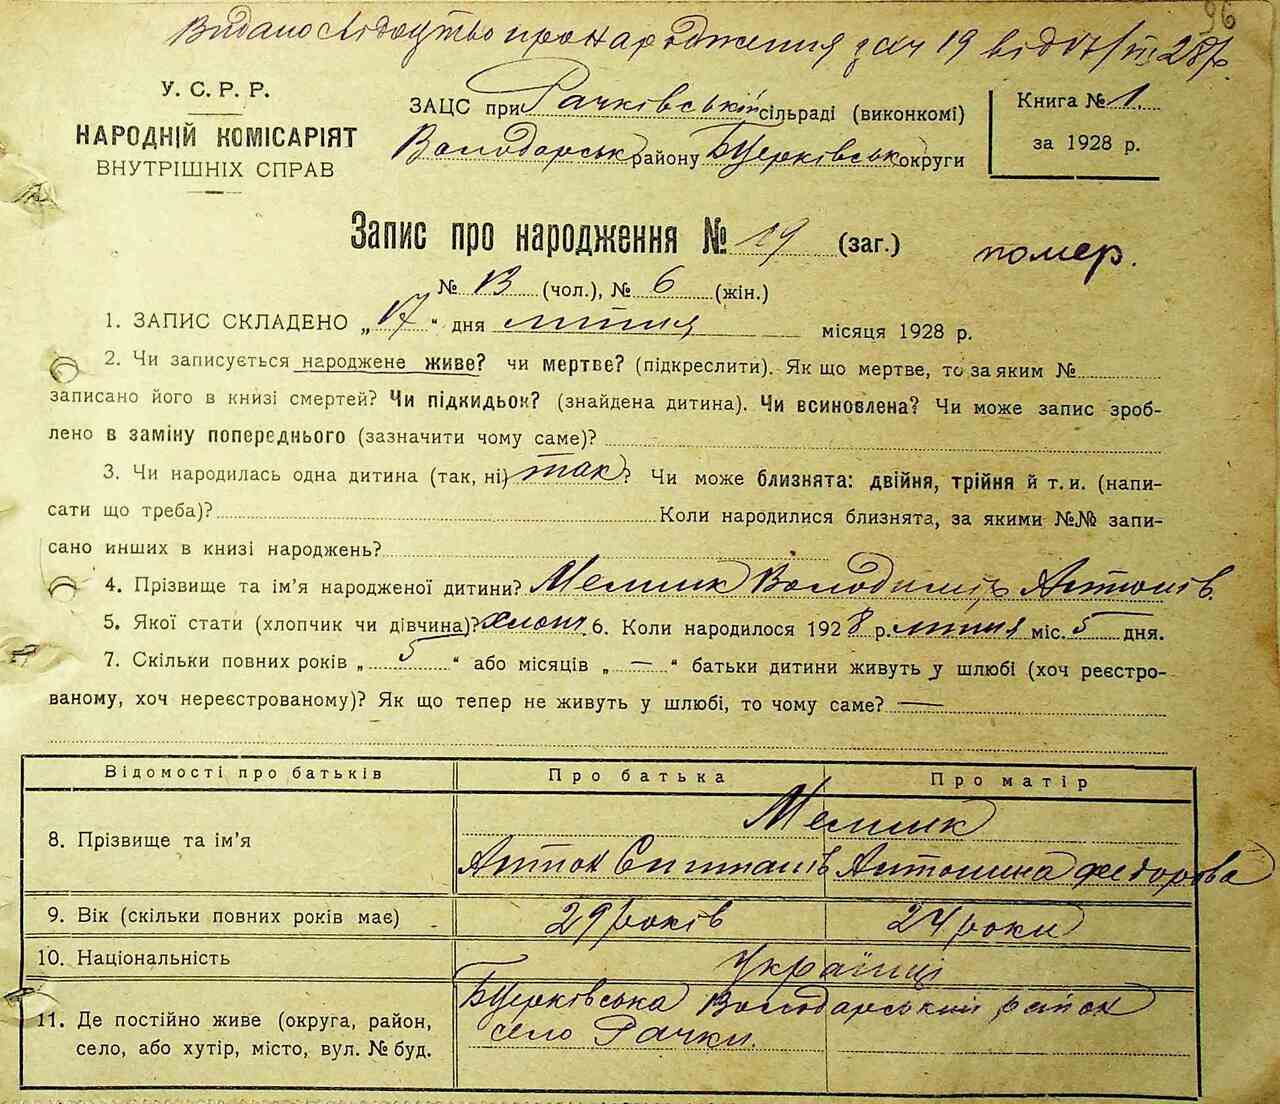 96
Видано свідоцтво про народження за ч 19 від 17/VII 28 р.
У. С. Р. Р.
НАРОДНІЙ КОМІСАРІЯТ
ВНУТРІШНІХ СПРАВ
ЗАЦС при Рачківській сільраді (виконкомі)
Володарськ району БЦерківськ округи
Книга № 1.
за 1928 р.
Запис про народження № 19 (заг.)
помер.
№ 13 (чол.), № 6 (жін.)
1. ЗАПИС СКЛАДЕНО „17“ дня липня місяця 1928 р.
2. Чи записується народжене живе? чи мертве? (підкреслити). Як що мертве, то за яким №
записано його в книзі смертей? Чи підкидьок? (знайдена дитина). Чи всиновлена? Чи може запис зроб-
лено в заміну попереднього (зазначити чому саме)?
3. Чи народилась одна дитина (так, ні) так? Чи може близнята: двійня, трійня й т. и. (напи-
сати що треба)? Коли народилися близнята, за якими №№ запи-
сано инших в книзі народжень?
4. Прізвище та ім’я народженої дитини? Мельник Володимір Антонів.
5. Якої стати (хлопчик чи дівчина)? хлопч. 6. Коли народилося 1928 р. липня міс. 5 дня.
7. Скільки повних років „ 5 “ або місяців „ — “ батьки дитини живуть у шлюбі (хоч реєстро-
ваному, хоч нереєстрованому)? Як що тепер не живуть у шлюбі, то чому саме? —
Відомості про батьків Про батька Про матір
8. Прізвище та ім’я Мельник
Антон Антонина Федорова
9. Вік (скільки повних років має) 29 років 24 роки
10. Національність Українці
11. Де постійно живе (округа, район, БЦерківська Володарський район
село, або хутір, місто, вул. № буд. село Рачки.